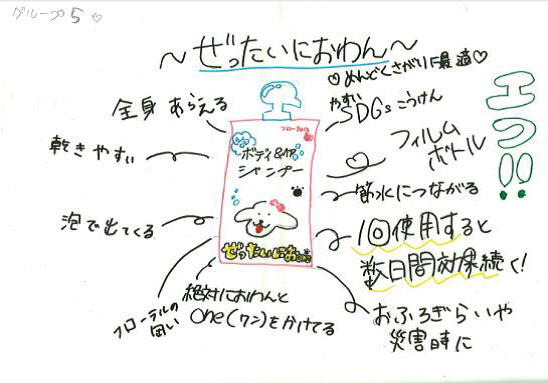 グループ5♡
～ぜったいにおわん～
♡めんどくさがりに最適♡
全身 あらえる
やすい
SDGsこうけん
エコ!!
乾きやすい
フローラル
ボディ&ヘア
シャンプー
フィルム
ボトル
節水につながる
泡で出てくる
1回使用すると
数日間効果続く!
フローラルの
匂い
絶対におわんと
one(ワン)をかけてる
おふろぎらいや
災害時に